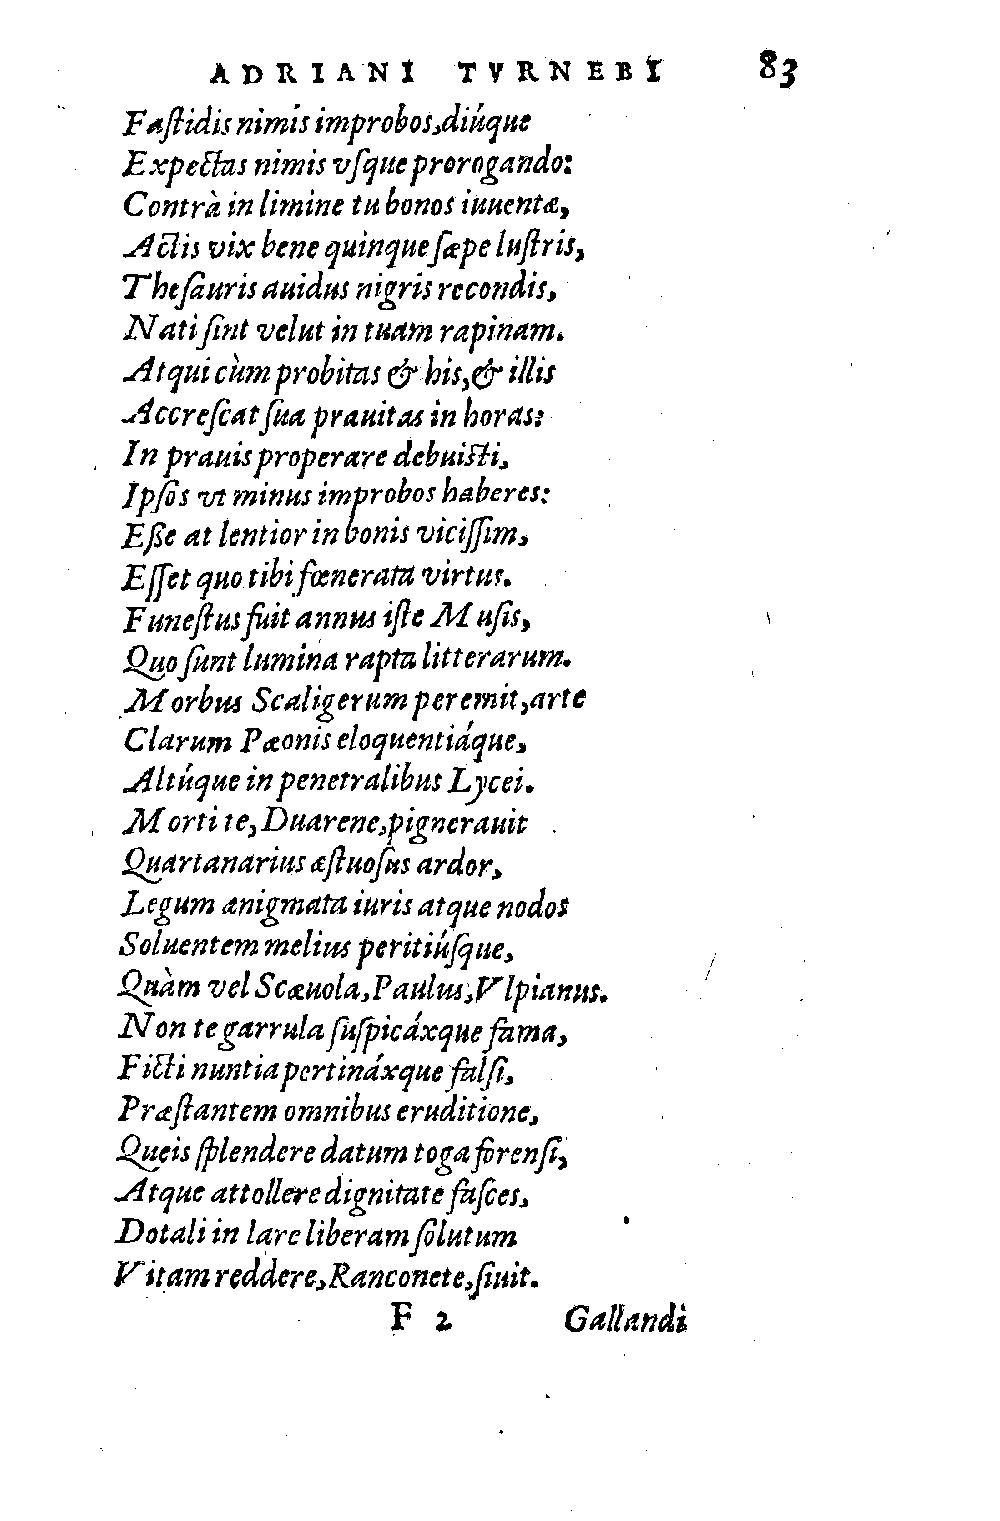 ADRIANI TVRNEBI 83
Faſtidis nimis improbos, diúque
Expectas nimis vſque prorogando:
Contrà in limine tu bonos iuuentæ,
Actis vix bene quinque ſæpe luſtris,
Theſauris auidus nigris recondis,
Nati ſint velut in tuam rapinam.
Atqui cùm probitas & his, & illis
Accreſcat ſua prauitas in horas:
In prauis properare debuisti,
Ipſos vt minus improbos haberes:
Eſſe at lentior in bonis viciſſim,
Eſſet quo tibi fœnerata virtus.
Funeſtus fuit annus iſte Muſis,
Quo ſunt lumina rapta litterarum.
Morbus Scaligerum peremit, arte
Clarum Pæonis eloquentiáque,
Altúque in penetralibus Lycei.
Morti te, Duarene, pignerauit
Quartanarius æſtuoſus ardor,
Legum ænigmata iuris atque nodos
Soluentem melius peritiúſque,
Quàm vel Scæuola, Paulus, Vlpianus.
Non te garrula ſuſpicáxque fama,
Ficti nuntia pertináxque falſi,
Præſtantem omnibus eruditione,
Queis ſplendere datum toga forenſi,
Atque attollere dignitate faſces,
Dotali in lare liberam ſolutum
Vitam reddere, Ranconete, ſiuit.
F 2 Gallandi